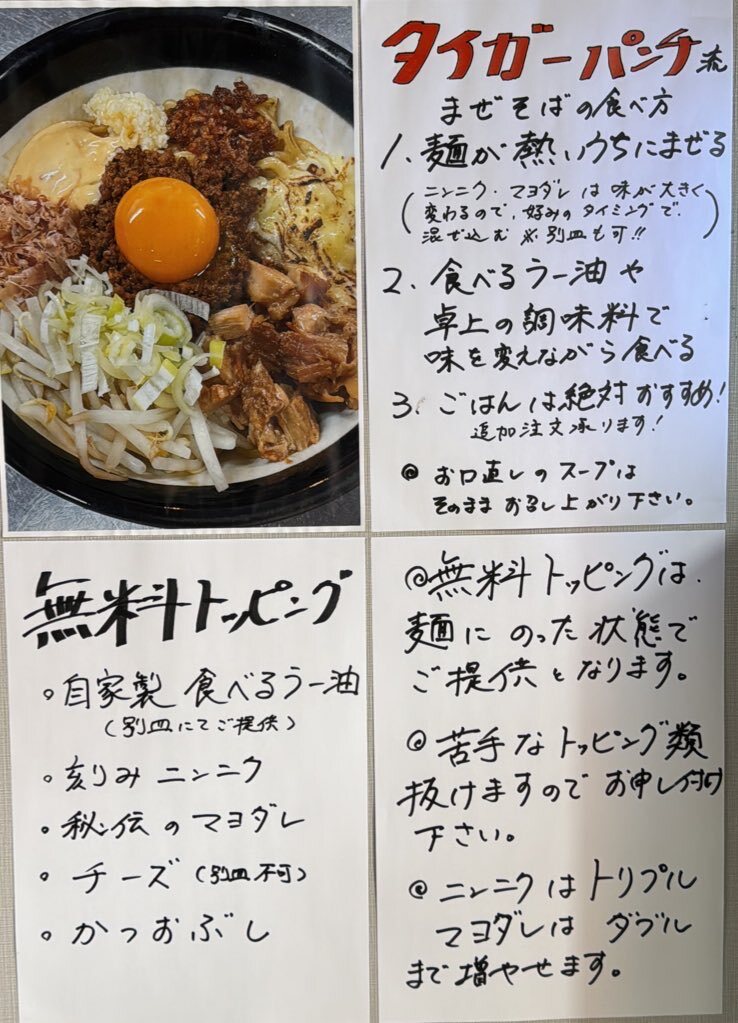 タイガーパンチ流
まぜそばの食べ方
1、麺が熱いうちにまぜる
(ニンニク・マヨダレは味が大きく
変わるので、好みのタイミングで、
混ぜ込む ※別皿も可!!)
2、食べるラー油や
卓上の調味料で
味を変えながら食べる
3、ごはんは絶対おすすめ!
追加注文承ります!
◎お口直しのスープは
そのままお召し上がり下さい。
無料トッピング
◦自家製 食べるラー油
(別皿にてご提供)
◦刻みニンニク
◦秘伝のマヨダレ
◦チーズ(別皿不可)
◦かつおぶし
◎無料トッピングは、
麺にのった状態で
ご提供となります。
◎苦手なトッピング類
抜けますのでお申し付け
下さい。
◎ニンニクはトリプル
マヨダレは ダブル
まで増やせます。